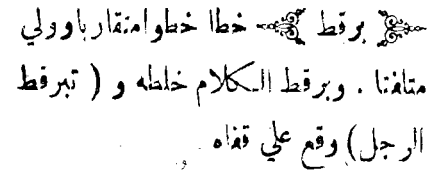 برقط خطا خطوا متقاربا وولي
متلفتا . وبرقط الكلام خلطه و ( تبرقط
الرجل ) وقع علي قفاه